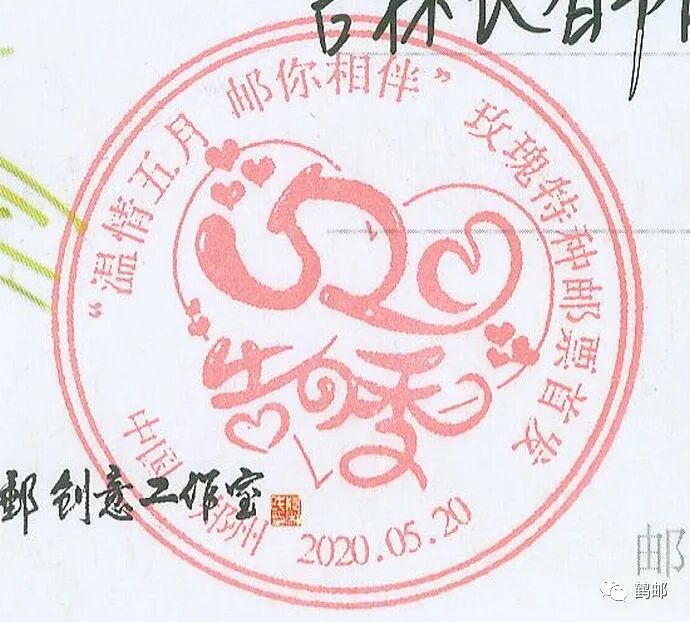 吉林长春
“温情五月 邮你相伴”玫瑰特种邮票首发
520
告白季
中国
郑州 2020.05.20
郵创意工作室
邮
鹤邮